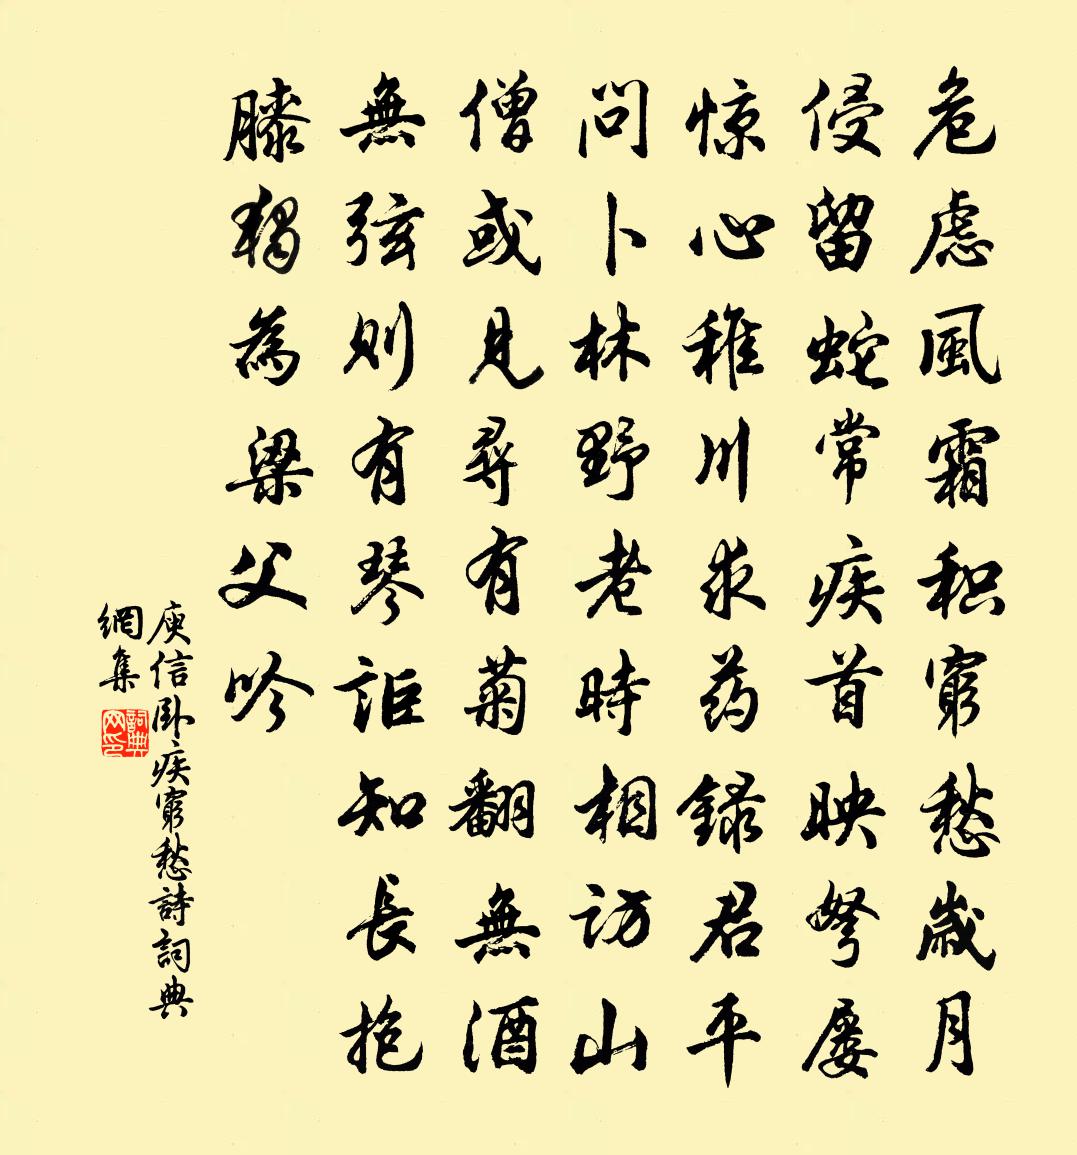 危慮風霜积窮愁歲月
侵留蛇常疾首映弩屢
惊心稚川求药録君平
問卜林野老時相訪山
僧或見尋有菊翻無酒
無弦則有琴詎知長抱
膝獨為梁父吟
庾信卧疾窮愁詩詞典
網集
詞典
网印